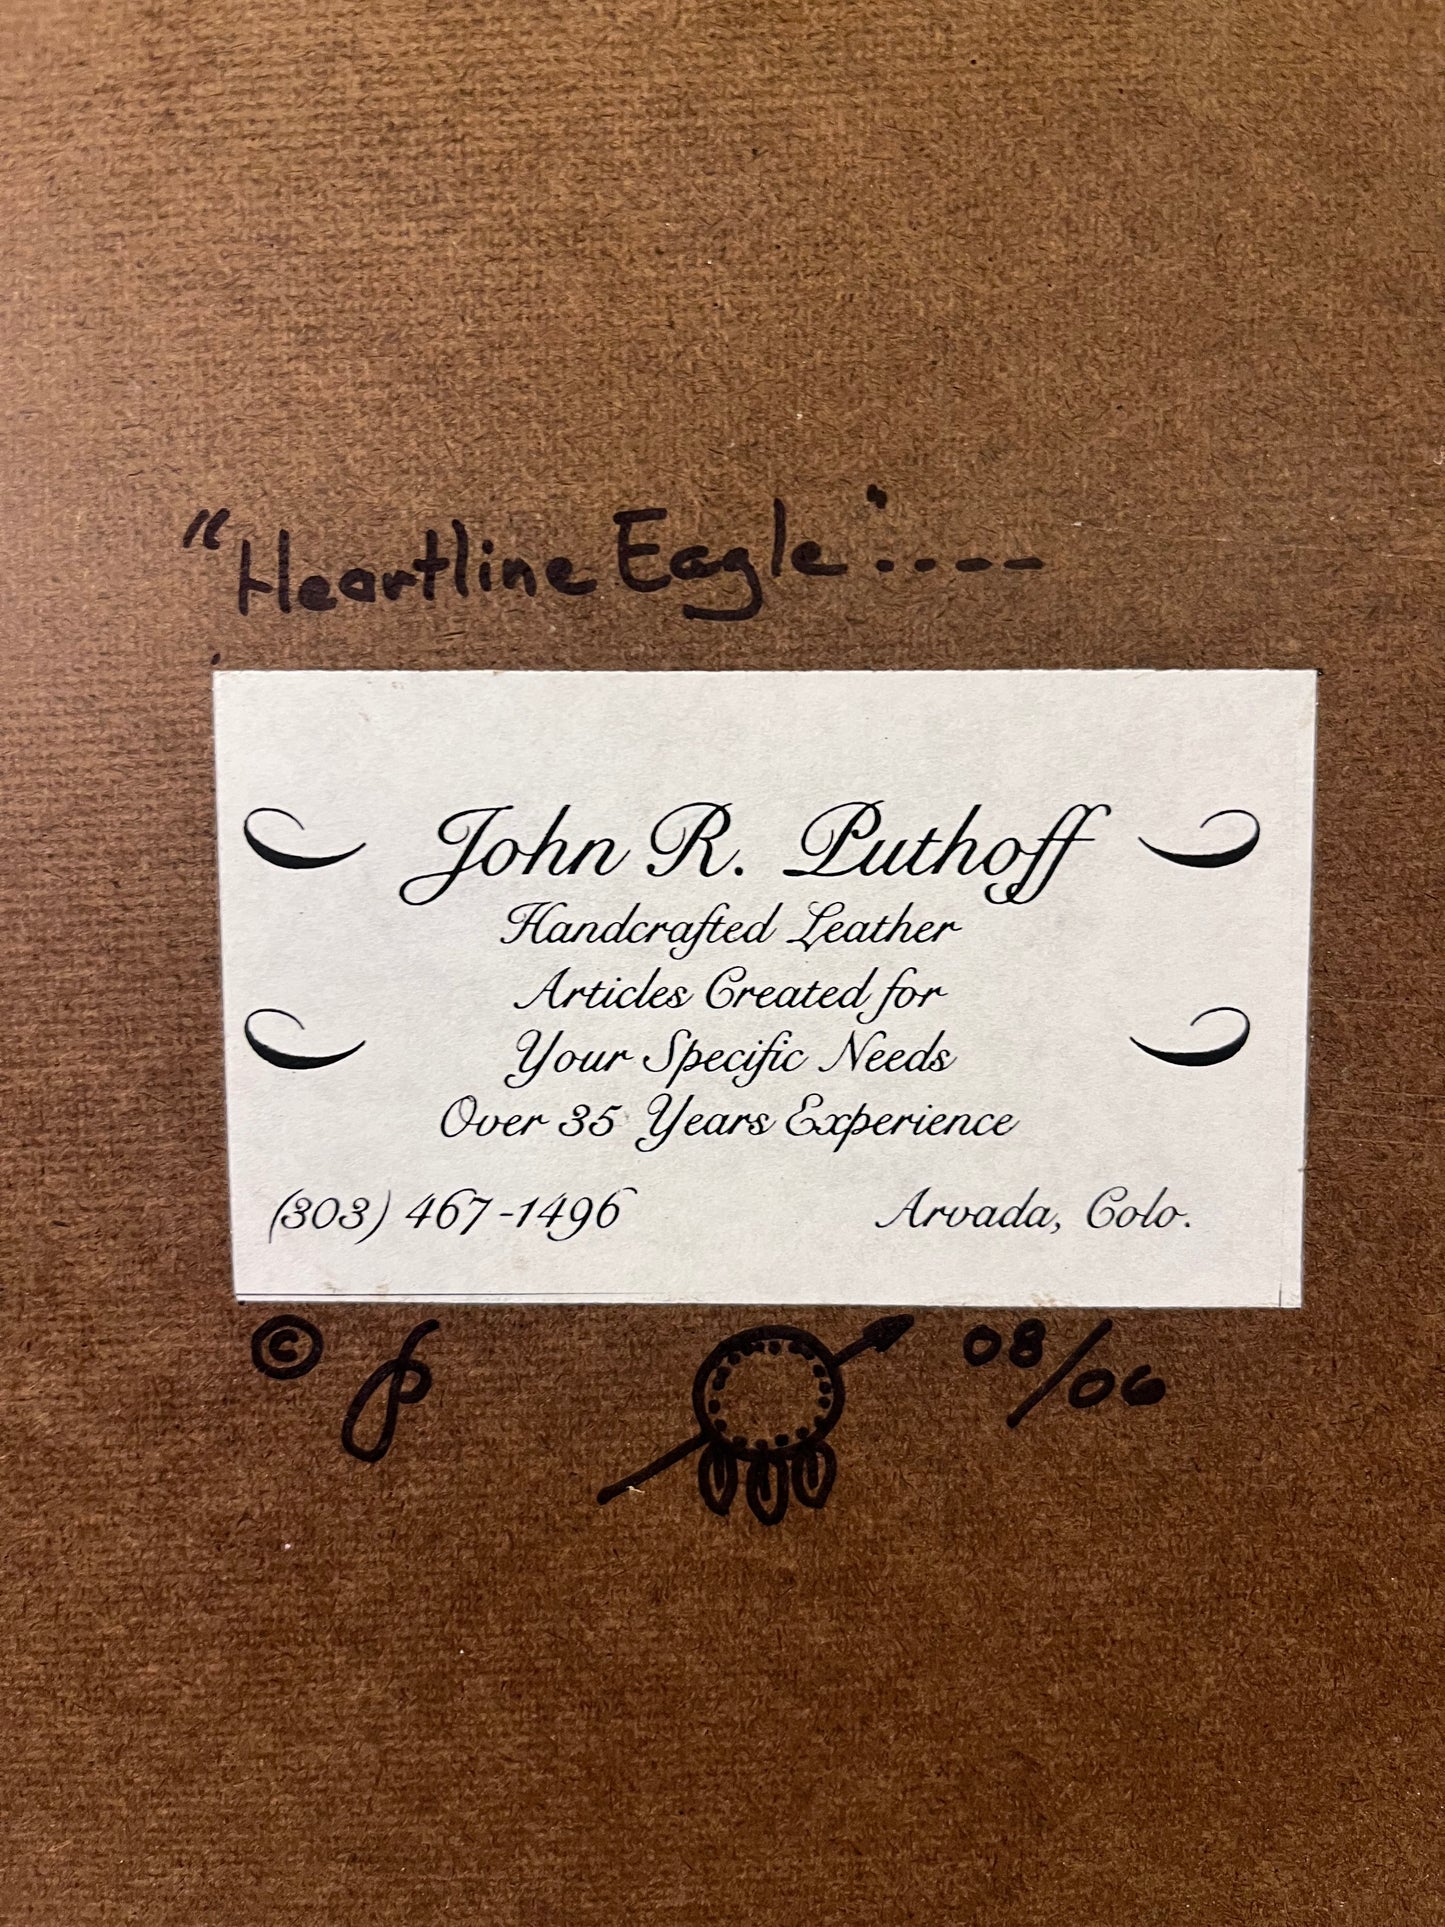 "Heartline Eagle"....
John R. Puthoff
Handcrafted Leather
Articles Created for
Your Specific Needs
Over 35 Years Experience
(303) 467-1496 Arvada, Colo.
© P 08/06